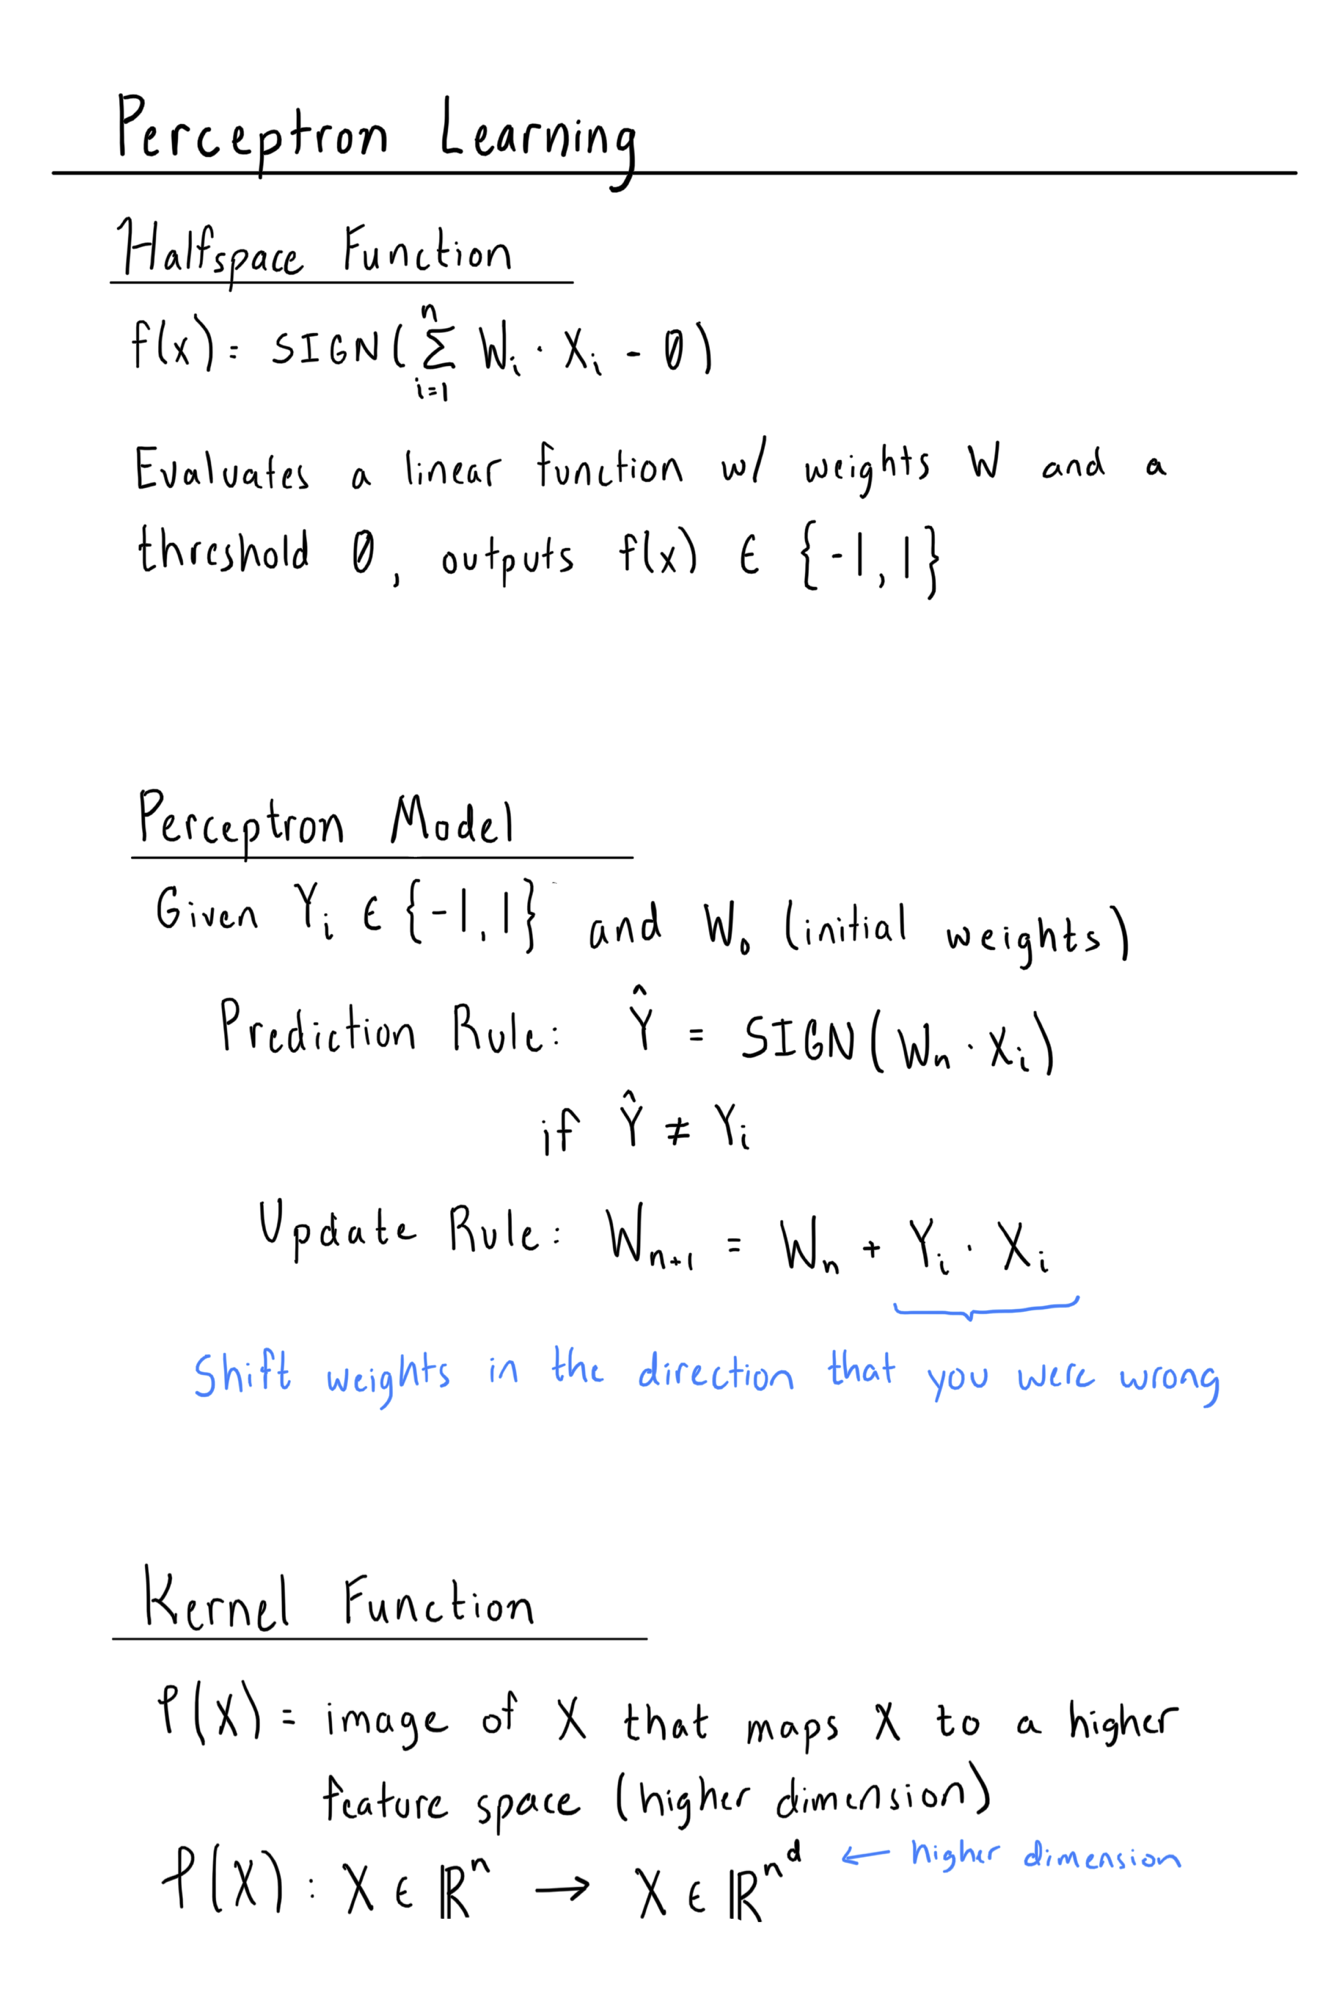 Perceptron Learning
Halfspace Function
f(x) = SIGN( Σ_{i=1}^{n} W_i · X_i - θ )
Evaluates a linear function w/ weights W and a
threshold θ, outputs f(x) ∈ {-1, 1}
Perceptron Model
Given Y_i ∈ {-1, 1} and W_0 (initial weights)
Prediction Rule: Ŷ = SIGN(W_n · X_i)
if Ŷ ≠ Y_i
Update Rule: W_{n+1} = W_n + Y_i · X_i
Shift weights in the direction that you were wrong
Kernel Function
φ(X) = image of X that maps X to a higher
feature space (higher dimension)
φ(X) : X ∈ ℝ^n → X ∈ ℝ^{n^d} ← higher dimension